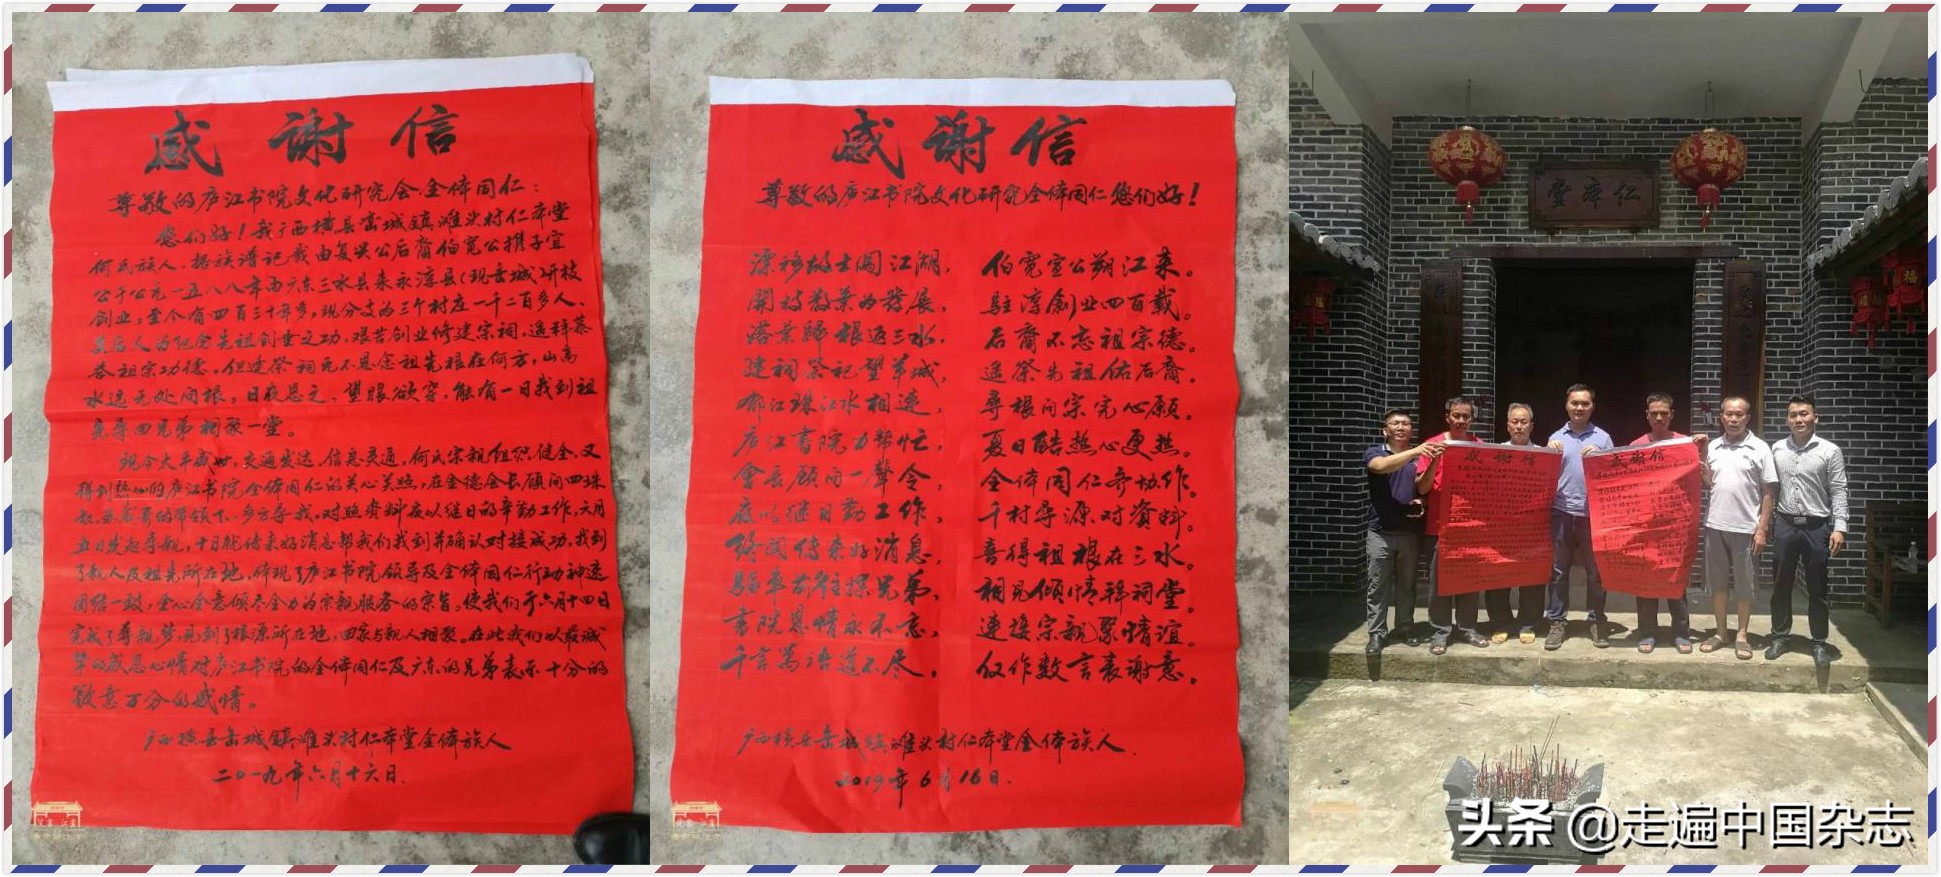 感谢信
尊敬的庐江书院文化研究会全体同仁：
您们好！我广西横县峦城镇滩头村仁本堂
何氏族人，据族谱记载由复兴公后裔伯宽公携子宜
公于公元一五八八年由广东三水县来永淳县(现峦城)开枝
创业，至今有四百三十年多，现分支为三个村庄一千二百多人、
其后人为纪念先祖创垂之功，艰苦创业修建宗祠，遥拜慕
恭祖宗功德，但建祭祠无不思念祖先根在何方，山高
水远无处问根，日夜思之，望眼欲穿，能有一日找到祖
先寻回兄弟相聚一堂。
现今太平盛世，交通发达，信息灵通，何氏宗亲组织健全，又
得到热心的庐江书院全体同仁的关心关照，在金德会长顾问四珠
的带领下，多方寻找，对照资料夜以继日的辛勤工作，六月
五日发起寻亲，十日能传来好消息帮我们找到并确认对接成功，找到
了亲人及祖先所在地，体现了庐江书院领导及全体同仁行动神速
团结一致，全心全意倾尽全力为宗亲服务的宗旨。使我们于六月十四日
完成了寻亲梦，见到了根源所在地，回家与亲人相聚。在此我们以最诚
挚的感恩心情对庐江书院的全体同仁及广东的兄弟表示十分的
敬意万分的感情。
广西横县峦城镇滩头村仁本堂全体族人
二0一九年六月十六日.
感谢信
尊敬的庐江书院文化研究全体同仁您们好！
漂移故土闯江湖， 伯宽宜公朔江来。
開枝散葉为发展， 駐淳創业四百载。
落葉歸根返三水， 后裔不忘祖宗德。
建祠祭祀望羊城， 遥祭先祖佑后裔。
郁江珠江水相連， 尋根问宗完心願。
庐江書院力帮忙， 夏日酷热心更热。
會長顾问一聲令， 全体同仁齐协作。
夜以继日勤工作， 千村尋源对資料。
终闻传来好消息， 喜得祖根在三水。
驅車前往探兄弟， 相见倾情拜祠堂。
書院恩情永不忘， 連接宗親聚情谊。
千言萬语道不尽， 仅作数言表谢意。
广西横县峦城镇滩头村仁本堂全体族人.
2019年6月16日.
仁本堂
感谢信
感谢信
福
头条 @走遍中国杂志